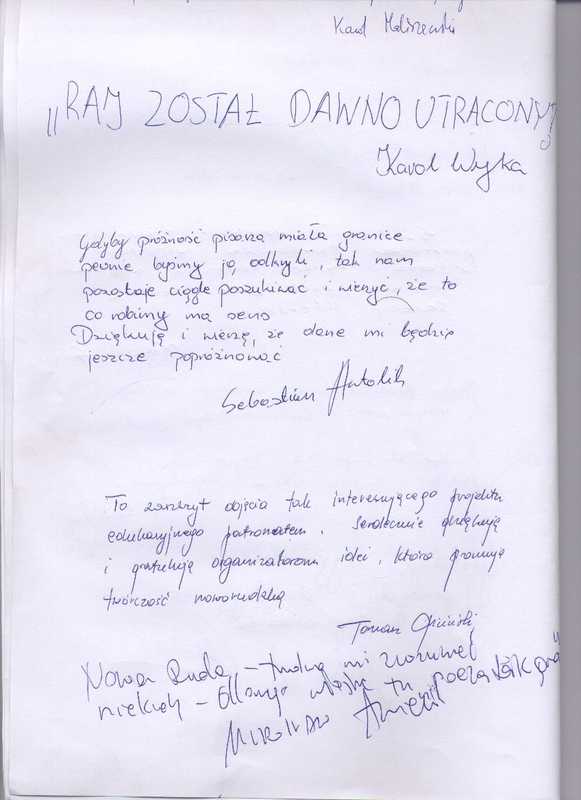 Karol Maliszewski
„RAJ ZOSTAŁ DAWNO UTRACONY"
Karol Wyka
Gdyby próżność pisarza miała granice
pewnie byśmy ją odkryli, tak nam
pozostaje ciągle poszukiwać i wierzyć, że to
co robimy ma sens
Dziękuję i wierzę, że dane mi będzie
jeszcze popróżnować
Sebastian
To zaszczyt objęcia tak interesującego projektu
edukacyjnego patronatem. Serdecznie dziękuję
i gratuluję organizatorom idei, która promuje
twórczość noworudzką
Tomasz
Nowa Ruda – trudno mi zrozumieć
niekiedy – dlaczego właśnie tu początek
Mirosław